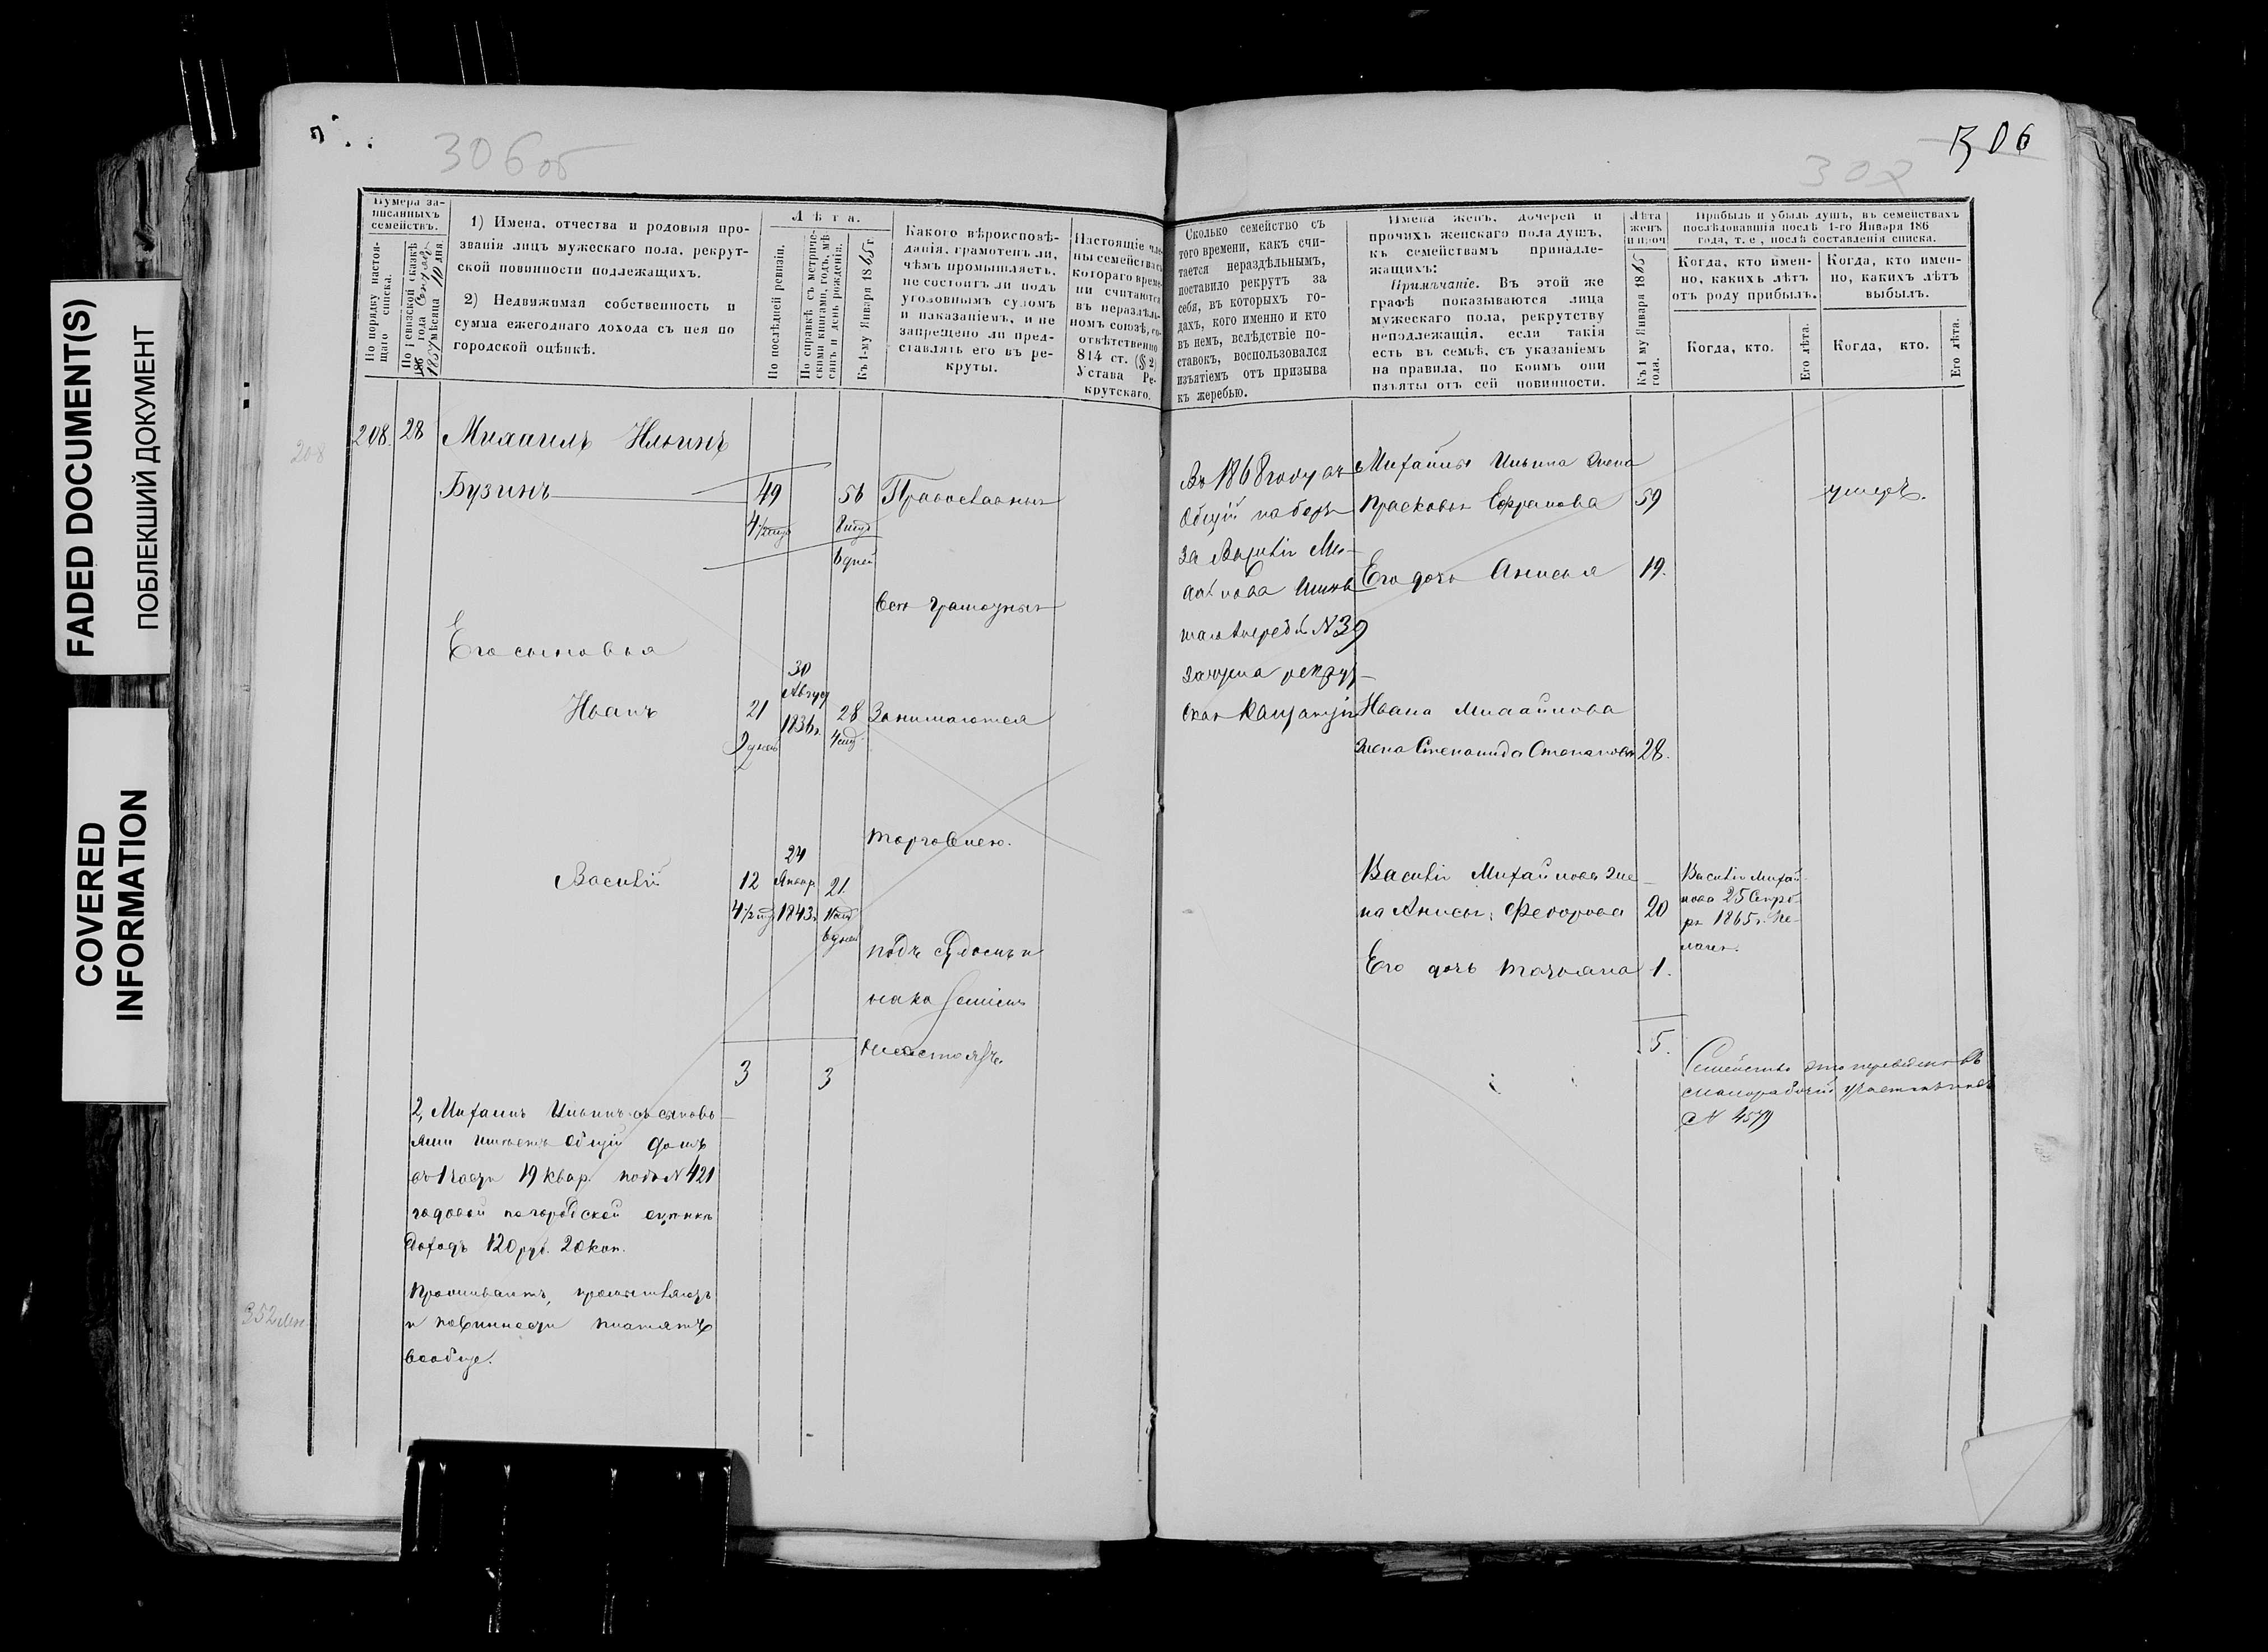 FADED DOCUMENT(S)
ПОБЛЕКШИЙ ДОКУМЕНТ
COVERED
INFORMATION
306 об
Нумера за-
писанныхъ
семействъ.
По порядку настоя-
щаго списка.
По ревизской сказкѣ
186 года
185 мѣсяца 10 дня.
1) Имена, отчества и родовыя про-
званія лицъ мужескаго пола, рекрут-
ской повинности подлежащихъ.
2) Недвижимая собственность и
сумма ежегоднаго дохода съ нея по
городской оцѣнкѣ.
Лѣта.
По послѣдней ревизіи.
По справкѣ съ метриче-
скими книгами, годъ, мѣ-
сяцъ и день рожденія.
Къ 1-му Января 1865 г.
Какого вѣроисповѣ-
данія, грамотенъ ли,
чѣмъ промышляетъ,
не состоитъ ли подъ
уголовнымъ судомъ
и наказаніемъ, и не
запрещено ли пред-
ставлять его въ ре-
круты.
Настоящіе чле-
ны семейства съ
котораго време-
ни считаются
въ нераздѣль-
номъ союзѣ, со-
отвѣтственно
814 ст. (§ 2)
Устава Ре-
крутскаго.
208
208. 28 Михаилъ Ильинъ
Бузинъ 49 56 Православные
4 1/2 мѣс 8 мѣс
6 дней
всѣ грамотные
Его сыновья
30
Август
Иванъ 21 1836 г. 28 Занимаются
9 дней 4 мѣс.
торговлею.
24
Василій 12 Январ 21
4 1/2 мѣс 1843 г. 11 мѣс
6 дней
подъ судомъ и
наказаніемъ
несостоятъ.
3 3
2, Михаилъ Ильинъ съ сыновь-
ями имѣетъ общій домъ
въ 1 части 19 квар. подъ N 421
годовой по городской оцѣнкѣ
доходъ 120 руб. 20 коп.
Проживаютъ, промышляютъ
и повинности платятъ
вообще.
352
306
302
Сколько семейство съ
того времени, какъ счи-
тается нераздѣльнымъ,
поставило рекрутъ за
себя, въ которыхъ го-
дахъ, кого именно и кто
въ немъ, вслѣдствіе по-
ставокъ, воспользовался
изъятіемъ отъ призыва
къ жеребью.
Имена женъ, дочерей и
прочихъ женскаго пола душъ,
къ семействамъ принадле-
жащихъ:
Примѣчаніе. Въ этой же
графѣ показываются лица
мужескаго пола, рекрутству
неподлежащія, если такія
есть въ семьѣ, съ указаніемъ
на правила, по коимъ они
изъяты отъ сей повинности.
Лѣта
женъ
и проч
Къ 1 му Января 1865
года.
Прибыль и убыль душъ, въ семействахъ
послѣдовавшія послѣ 1-го Января 186
года, т. е., послѣ составленія списка.
Когда, кто имен-
но, какихъ лѣтъ
отъ роду прибылъ.
Когда, кто имен-
но, какихъ лѣтъ
выбылъ.
Когда, кто.
Его лѣта.
Когда, кто.
Его лѣта.
Въ 1868 году въ
общій наборъ
за Василія Ми-
N 39
зачтена рекрут-
ская квитанція
Михаила Ильина жена
Прасковья Ефремова 59 умеръ.
Его дочь Анисья 19.
Ивана Михайлова
жена Степанида Степанова 28.
Василія Михайлова же-
на Анисья Федорова 20
Его дочь Татьяна 1.
5.
Василія Михай-
лова 25 Сентяб-
ря 1865 г. Пе-
лагея.
Семейство это переведено въ
участокъ
N 4579